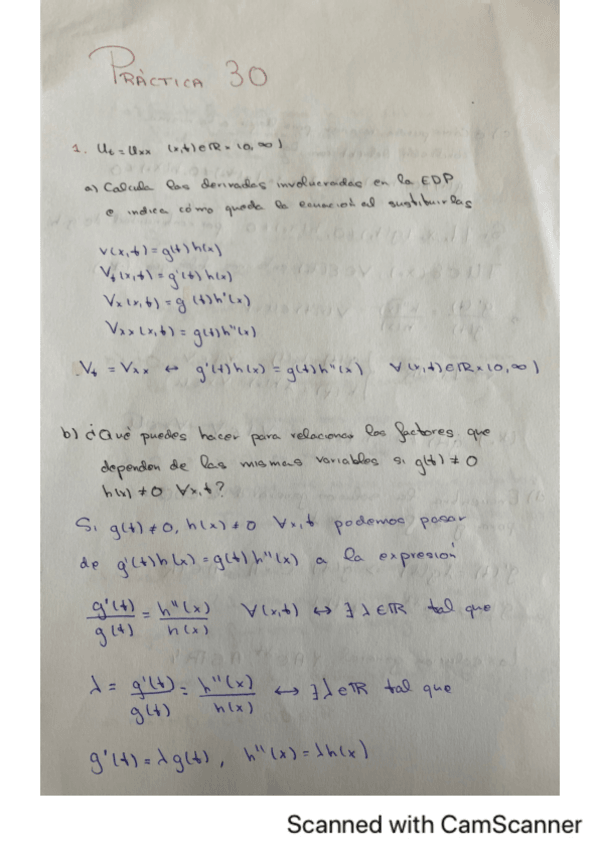 PRÀCTICA 30
1. Ut = Uxx (x,t) ∈ ℝ × (0, ∞)
a) Calcula las derivadas involucradas en la EDP
e indica cómo queda la ecuación al sustituirlas
v(x,t) = g(t)h(x)
Vt(x,t) = g'(t)h(x)
Vx(x,t) = g(t)h'(x)
Vxx(x,t) = g(t)h''(x)
Vt = Vxx ↔ g'(t)h(x) = g(t)h''(x) ∀(x,t) ∈ ℝ × (0, ∞)
b) ¿Qué puedes hacer para relacionar los factores que
dependen de las mismas variables si g(t) ≠ 0
h(x) ≠ 0 ∀x,t?
Si g(t) ≠ 0, h(x) ≠ 0 ∀x,t podemos pasar
de g'(t)h(x) = g(t)h''(x) a la expresión
g'(t)/g(t) = h''(x)/h(x) ∀(x,t) ↔ ∃ λ ∈ ℝ tal que
λ = g'(t)/g(t) = h''(x)/h(x) ↔ ∃ λ ∈ ℝ tal que
g'(t) = λg(t), h''(x) = λh(x)
Scanned with CamScanner